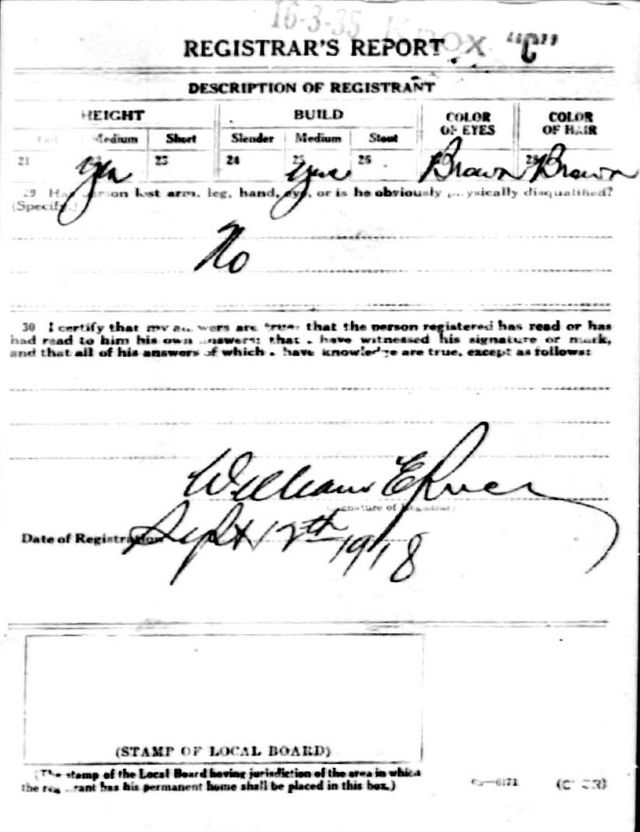 16-3-35 BOX "C"
REGISTRAR'S REPORT
DESCRIPTION OF REGISTRANT
HEIGHT BUILD COLOR OF EYES COLOR OF HAIR
Medium Short Slender Medium Stout
21 23 24 25 26
Yes Yes Brown Brown
29 Has person lost arm, leg, hand, eye, or is he obviously physically disqualified?
(Specify.)
No
30 I certify that my answers are true; that the person registered has read or has
had read to him his own answers; that I have witnessed his signature or mark,
and that all of his answers of which I have knowledge are true, except as follows:
William E
(Signature of Registrar)
Date of Registration Sept 12th 1918
(STAMP OF LOCAL BOARD)
(The stamp of the Local Board having jurisdiction of the area in which
the registrant has his permanent home shall be placed in this box.)
03—6171 (OVER)